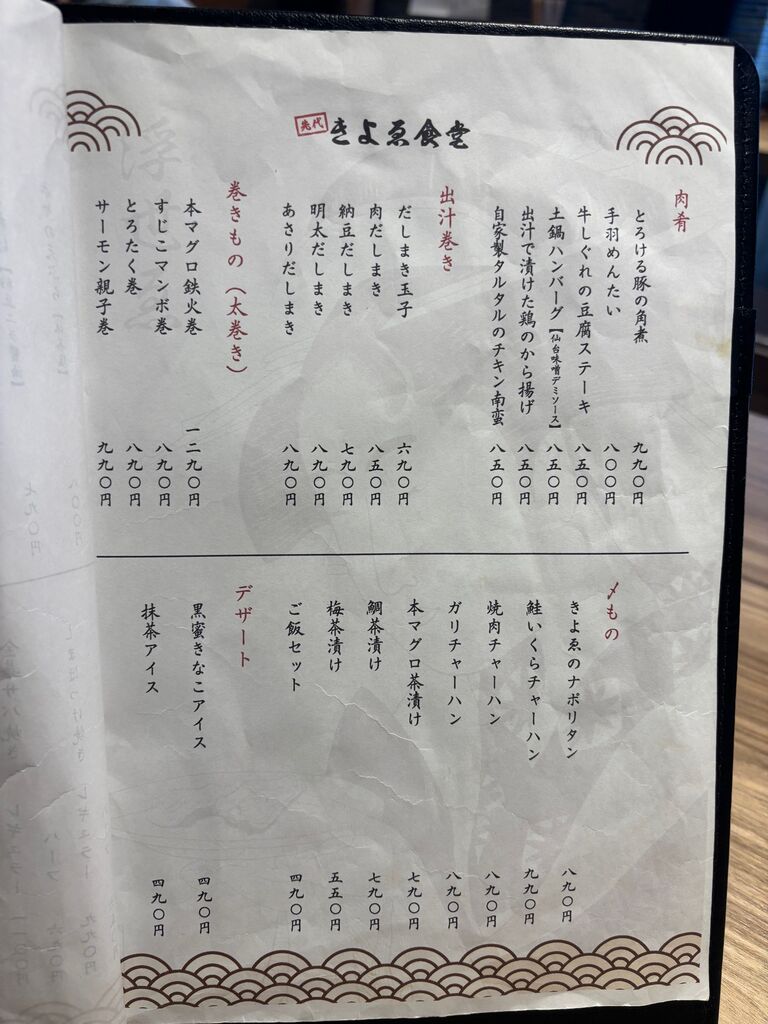 先代
きよゑ食堂
肉肴
とろける豚の角煮 九九〇円
手羽めんたい 八〇〇円
牛しぐれの豆腐ステーキ 八五〇円
土鍋ハンバーグ【仙台味噌デミソース】 八五〇円
出汁で漬けた鶏のから揚げ 八五〇円
自家製タルタルのチキン南蛮 八五〇円
出汁巻き
だしまき玉子 六九〇円
肉だしまき 八五〇円
納豆だしまき 七九〇円
明太だしまき 八九〇円
あさりだしまき 八九〇円
巻きもの（太巻き）
本マグロ鉄火巻 一二九〇円
すじこマンボ巻 八九〇円
とろたく巻 八九〇円
サーモン親子巻 九九〇円
〆もの
きよゑのナポリタン 八九〇円
鮭いくらチャーハン 九九〇円
焼肉チャーハン 八九〇円
ガリチャーハン 八九〇円
本マグロ茶漬け 七九〇円
鯛茶漬け 七九〇円
梅茶漬け 五五〇円
ご飯セット 四九〇円
デザート
黒蜜きなこアイス 四九〇円
抹茶アイス 四九〇円